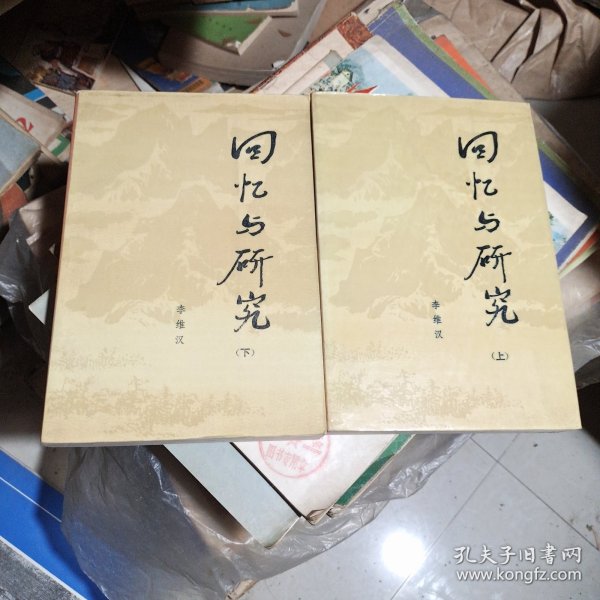 回忆与研究
李维汉
（下）
回忆与研究
李维汉
（上）
图书专用章
孔夫子旧书网
www.kongfz.com